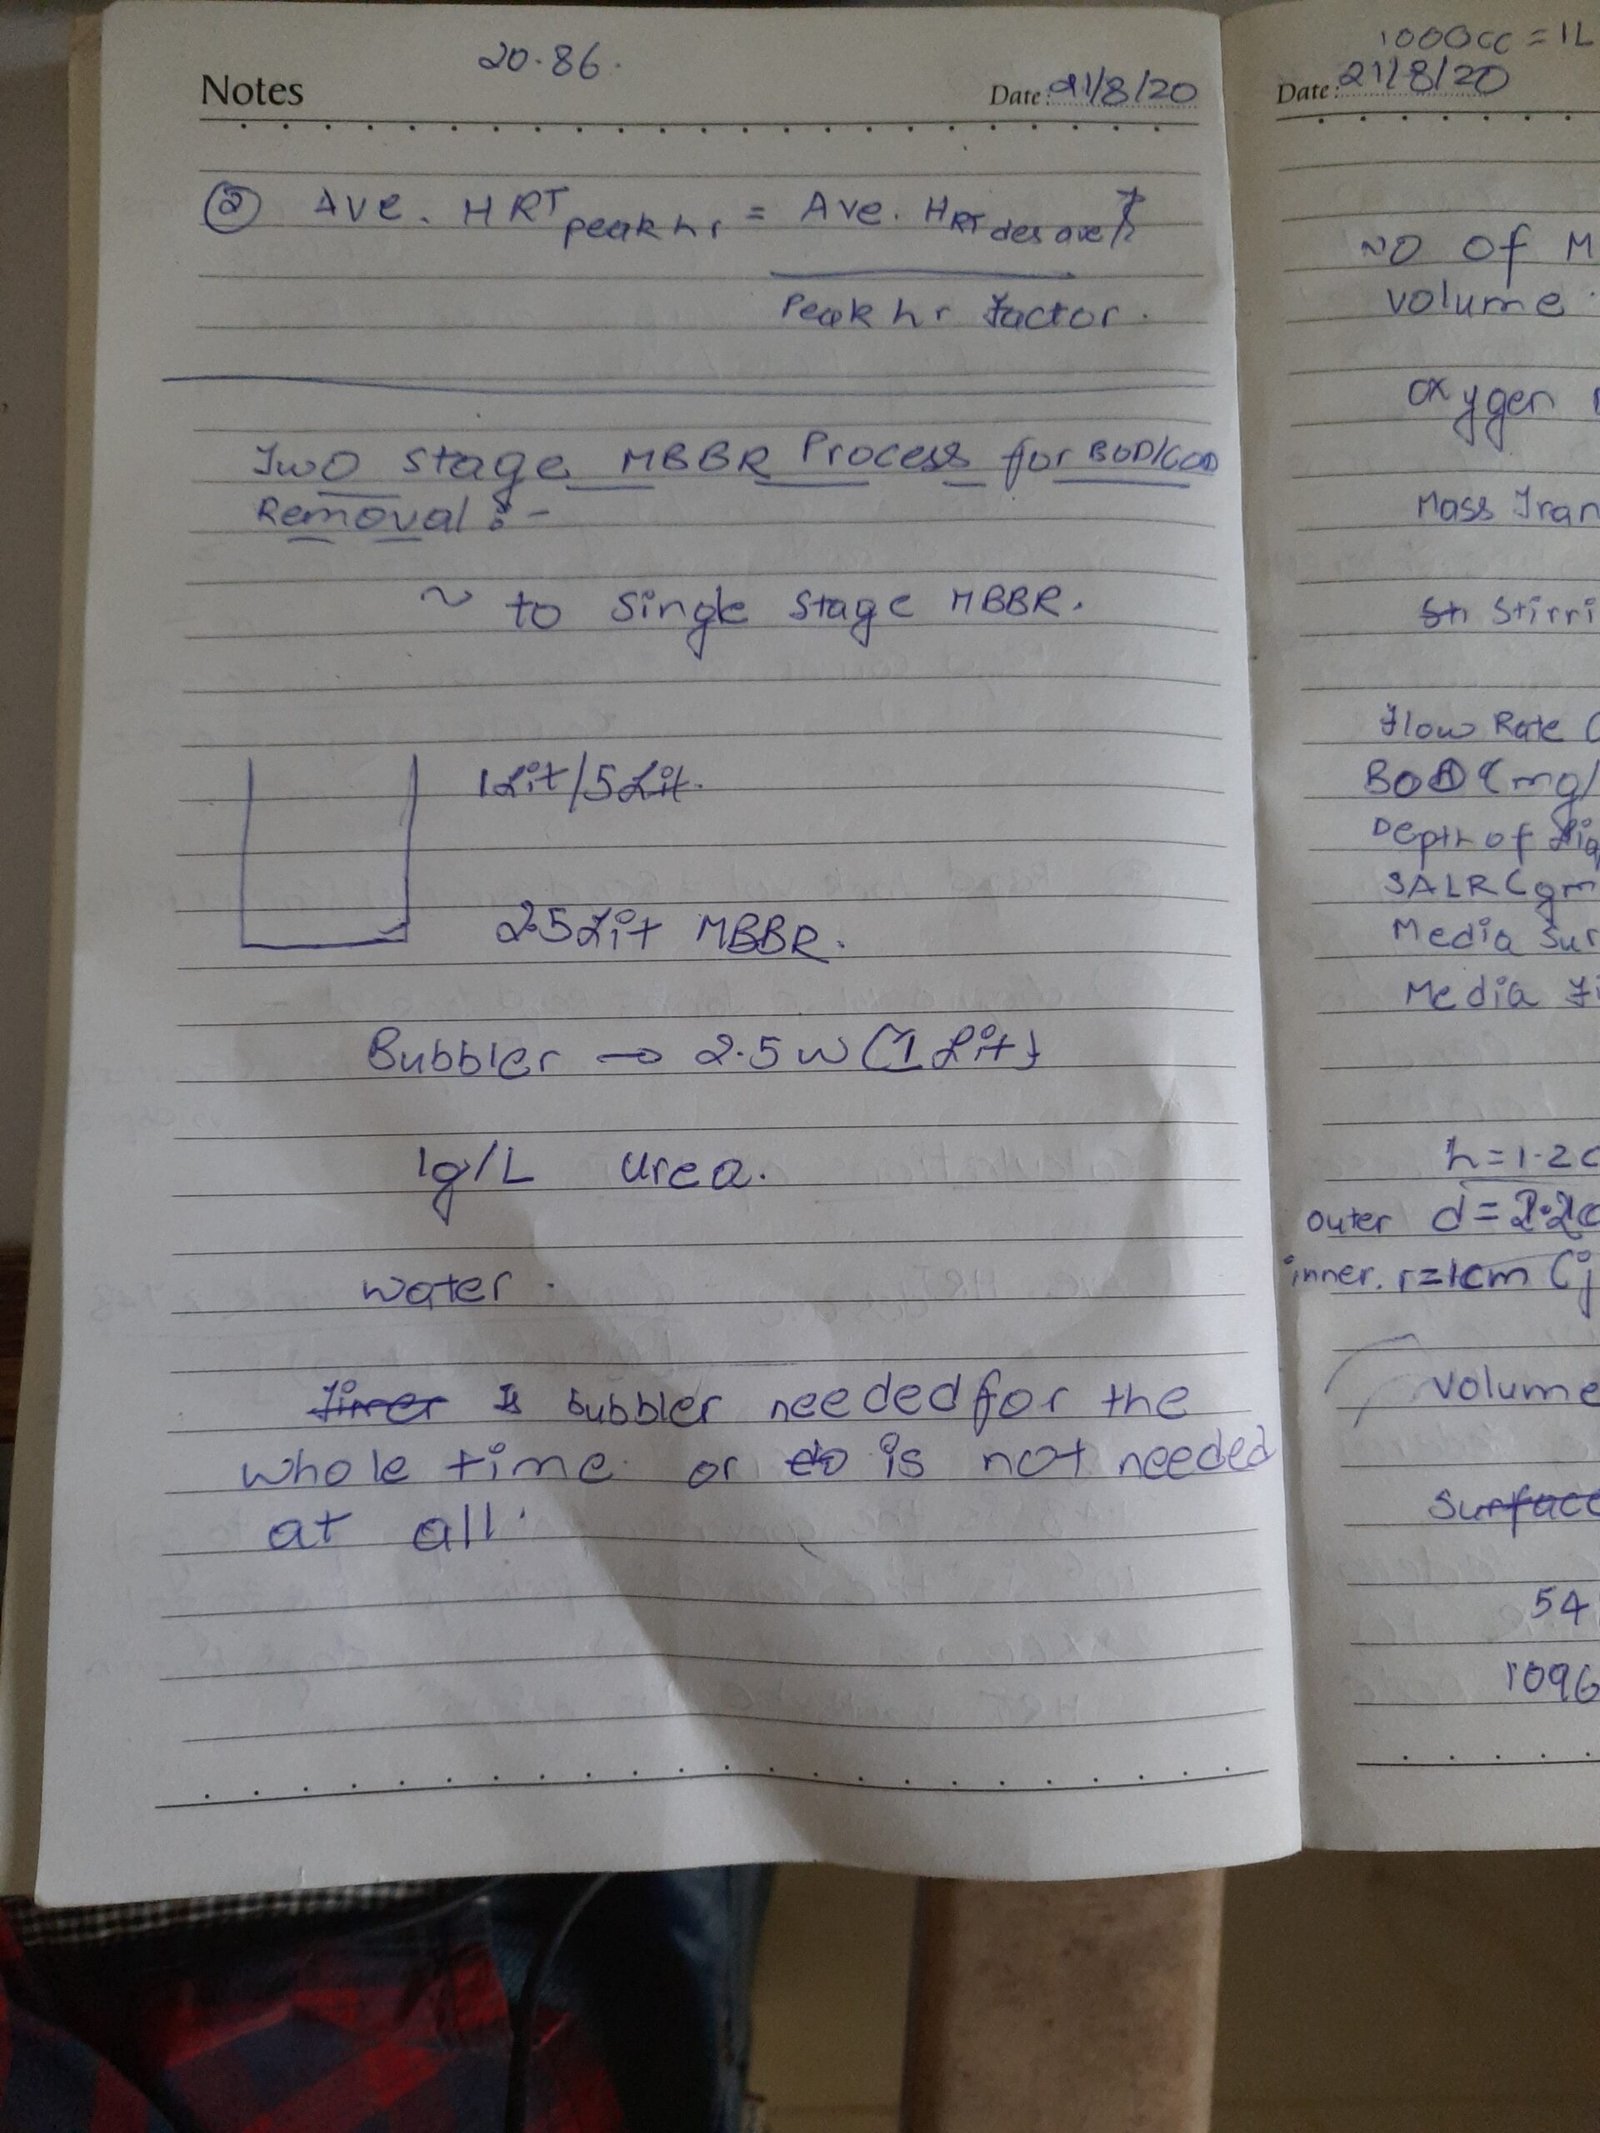 20.86.
Notes
Date: 21/8/20
② Ave. HRT peak hr = Ave. HRT des ave
Peak hr factor.
Two stage MBBR Process for BOD/COD
Removal :-
~ to single stage MBBR.
1Lit/5Lit.
2.5Lit MBBR.
Bubbler → 2.5 w (1 Lit)
1g/L urea.
water.
Timer Is bubbler needed for the
whole time or do is not needed
at all.
1000cc = 1L
Date: 21/8/20
NO of M
volume
oxygen
Mass Tran
Stirri
Flow Rate (
BOD (mg/
Depth of
SALR (gm
Media Sur
Media Fi
h = 1.2c
outer d =
inner. r=1cm (
volume
Surface
54
1096